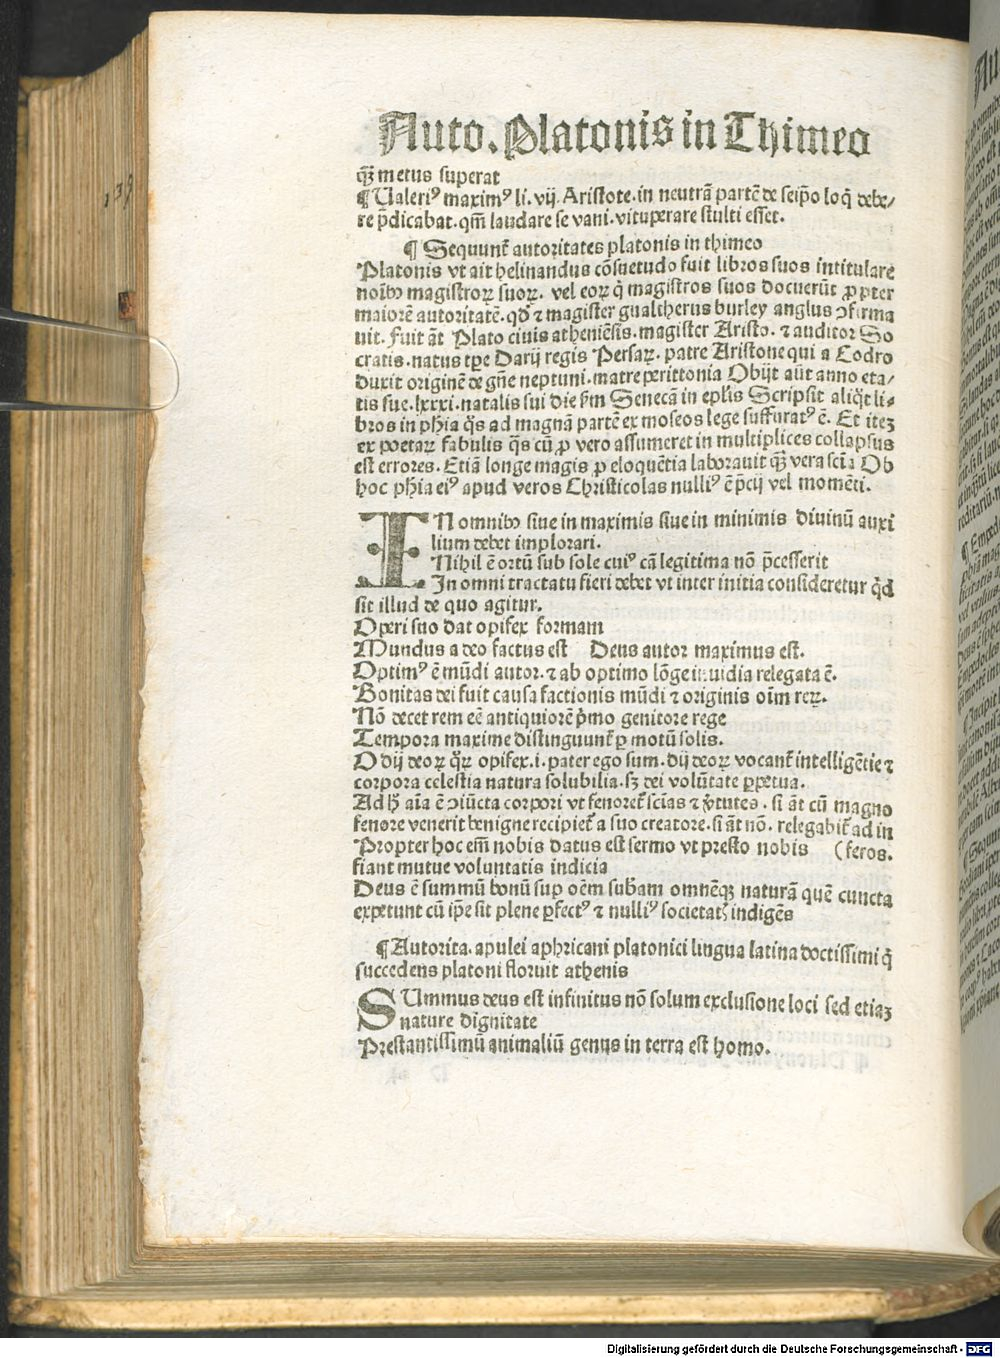 Auto. Platonis in Thimeo
139
qꝫ metus superat
¶ Ualeriꝰ maximꝰ li. vij. Aristote. in neutrā partē de seip̄o loq̄ debe⸗
re p̄dicabat. qm̄ laudare se vani. vituperare stulti esset.
¶ Sequunt̄ autoritates platonis in thimeo
Platonis vt ait helinandus cōsuetudo fuit libros suos intitulare
noībꝰ magistroꝝ suoꝝ. vel eoꝝ q̇ magistros suos docuerūt ꝓpter
maiorē autoritatē. qd̓ ⁊ magister gualtherus burley anglus ꝯfirma
uit. Fuit āt Plato ciuis atheniēsis. magister Aristo. ⁊ auditor So
cratis. natus tꝑe Darij regis Persaꝝ. patre Aristone qui a Codro
duxit originē de gn̄e neptuni. matre perittonia Obijt aūt anno eta⸗
tis sue. lxxxi. natalis sui die ẜm Senecā in epl̓is Scripsit aliq̄t li⸗
bros in phīa q̄s ad magnā partē ex moseos lege suffuratꝰ ē. Et iteꝫ
ex poetaꝝ fabulis q̄s cū ꝓ vero assumeret in multiplices collapsus
est errores. Etiā longe magis ꝓ eloquētia laborauit qꝫ vera scīa Ob
hoc phīa eiꝰ apud veros Christicolas nulliꝰ ē p̄cij vel momēti.
IN omnibꝰ siue in maximis siue in minimis diuinū auxi
lium debet implorari.
Nihil ē ortū sub sole cuiꝰ cā legitima nō p̄cesserit
In omni tractatu fieri debet vt inter initia consideretur qd̓
sit illud de quo agitur.
Operi suo dat opifex formam
Mundus a deo factus est Deus autor maximus est.
Optimꝰ ē mūdi autor. ⁊ ab optimo lōge inuidia relegata ē.
Bonitas dei fuit causa factionis mūdi ⁊ originis oīm reꝝ.
Nō decet rem eē antiquiorē p̄mo genitore rege
Tempora maxime distinguunt̄ ꝑ motū solis.
O dij deoꝝ qꝝ opifex. i. pater ego sum. dij deoꝝ vocant̄ intelligētie ⁊
corpora celestia natura solubilia. sꝫ dei volūtate ꝑpetua.
Ad hꝫ aīa ē ꝯiūcta corpori vt fenoret̄ scīas ⁊ v̓tutes. si āt cū magno
fenore venerit benigne recipiet̄ a suo creatore. si āt nō. relegabit̄ ad in
Propter hoc em̄ nobis datus est sermo vt presto nobis (feros.
fiant mutue voluntatis indicia
Deus ē summū bonū supꝛ oēm sub̄am omnēqꝫ naturā quē cuncta
expetunt cū ip̄e sit plene ꝑfectꝰ ⁊ nulliꝰ societatꝭ indigēs
¶ Autorita. apulei aphricani platonici lingua latina doctissimi q̄
succedens platoni floruit athenis
SUmmus deus est infinitus nō solum exclusione loci sed etiaꝫ
nature dignitate
Prestantissimū animaliū genus in terra est homo.
Digitalisierung gefördert durch die Deutsche Forschungsgemeinschaft - DFG